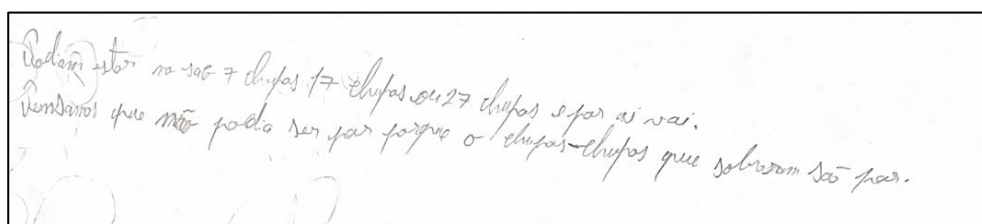 Podiam estar no saco 7 chupas 17 chupas ou 27 chupas e por ai vai.
Pensamos que não podia ser par porque o chupas-chupas que sobraram são par.